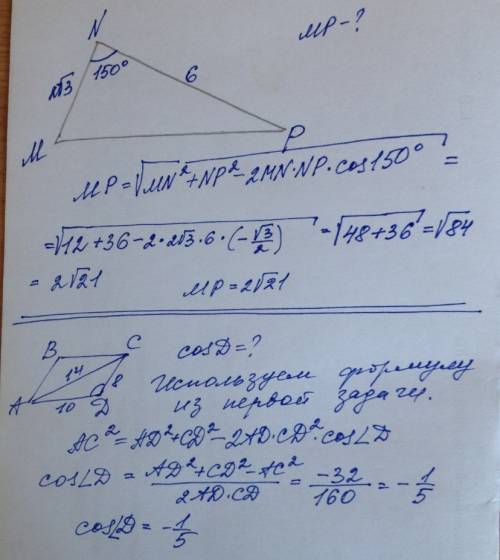 N
MP-?
2√3
150°
6
M
P
MP=√MN²+NP²-2MN·NP·cos150° =
=√12+36-2·2√3·6·(-√3/2) =√48+36 =√84
= 2√21 MP=2√21
B C cosD=?
14 8
A 10 D
Используем формулу
из первой задачи.
AC²=AD²+CD²-2AD·CD·cos∠D
cos∠D = AD²+CD²-AC² / 2AD·CD = -32/160 = -1/5
cos∠D = -1/5